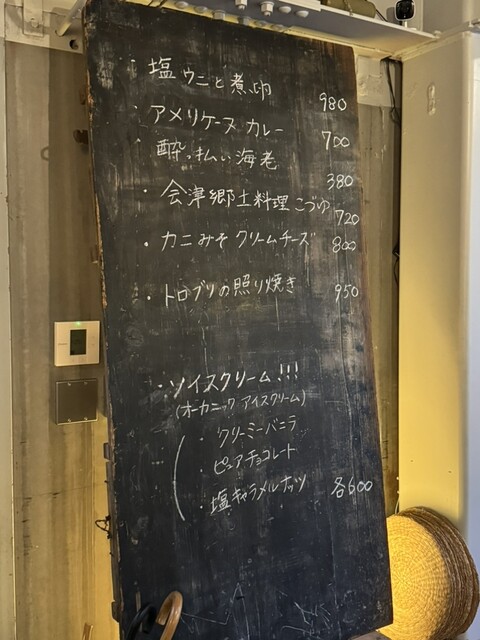 ・塩ウニと煮卵 980
・アメリケーヌ カレー 700
・酔っ払い海老 380
・会津郷土料理こづゆ 720
・カニみそクリームチーズ 800
・トロブリの照り焼き 950
・ソイスクリーム!!!
(オーガニック アイスクリーム)
・クリーミーバニラ
・ピュアチョコレート
・塩キャラメルナッツ 各600